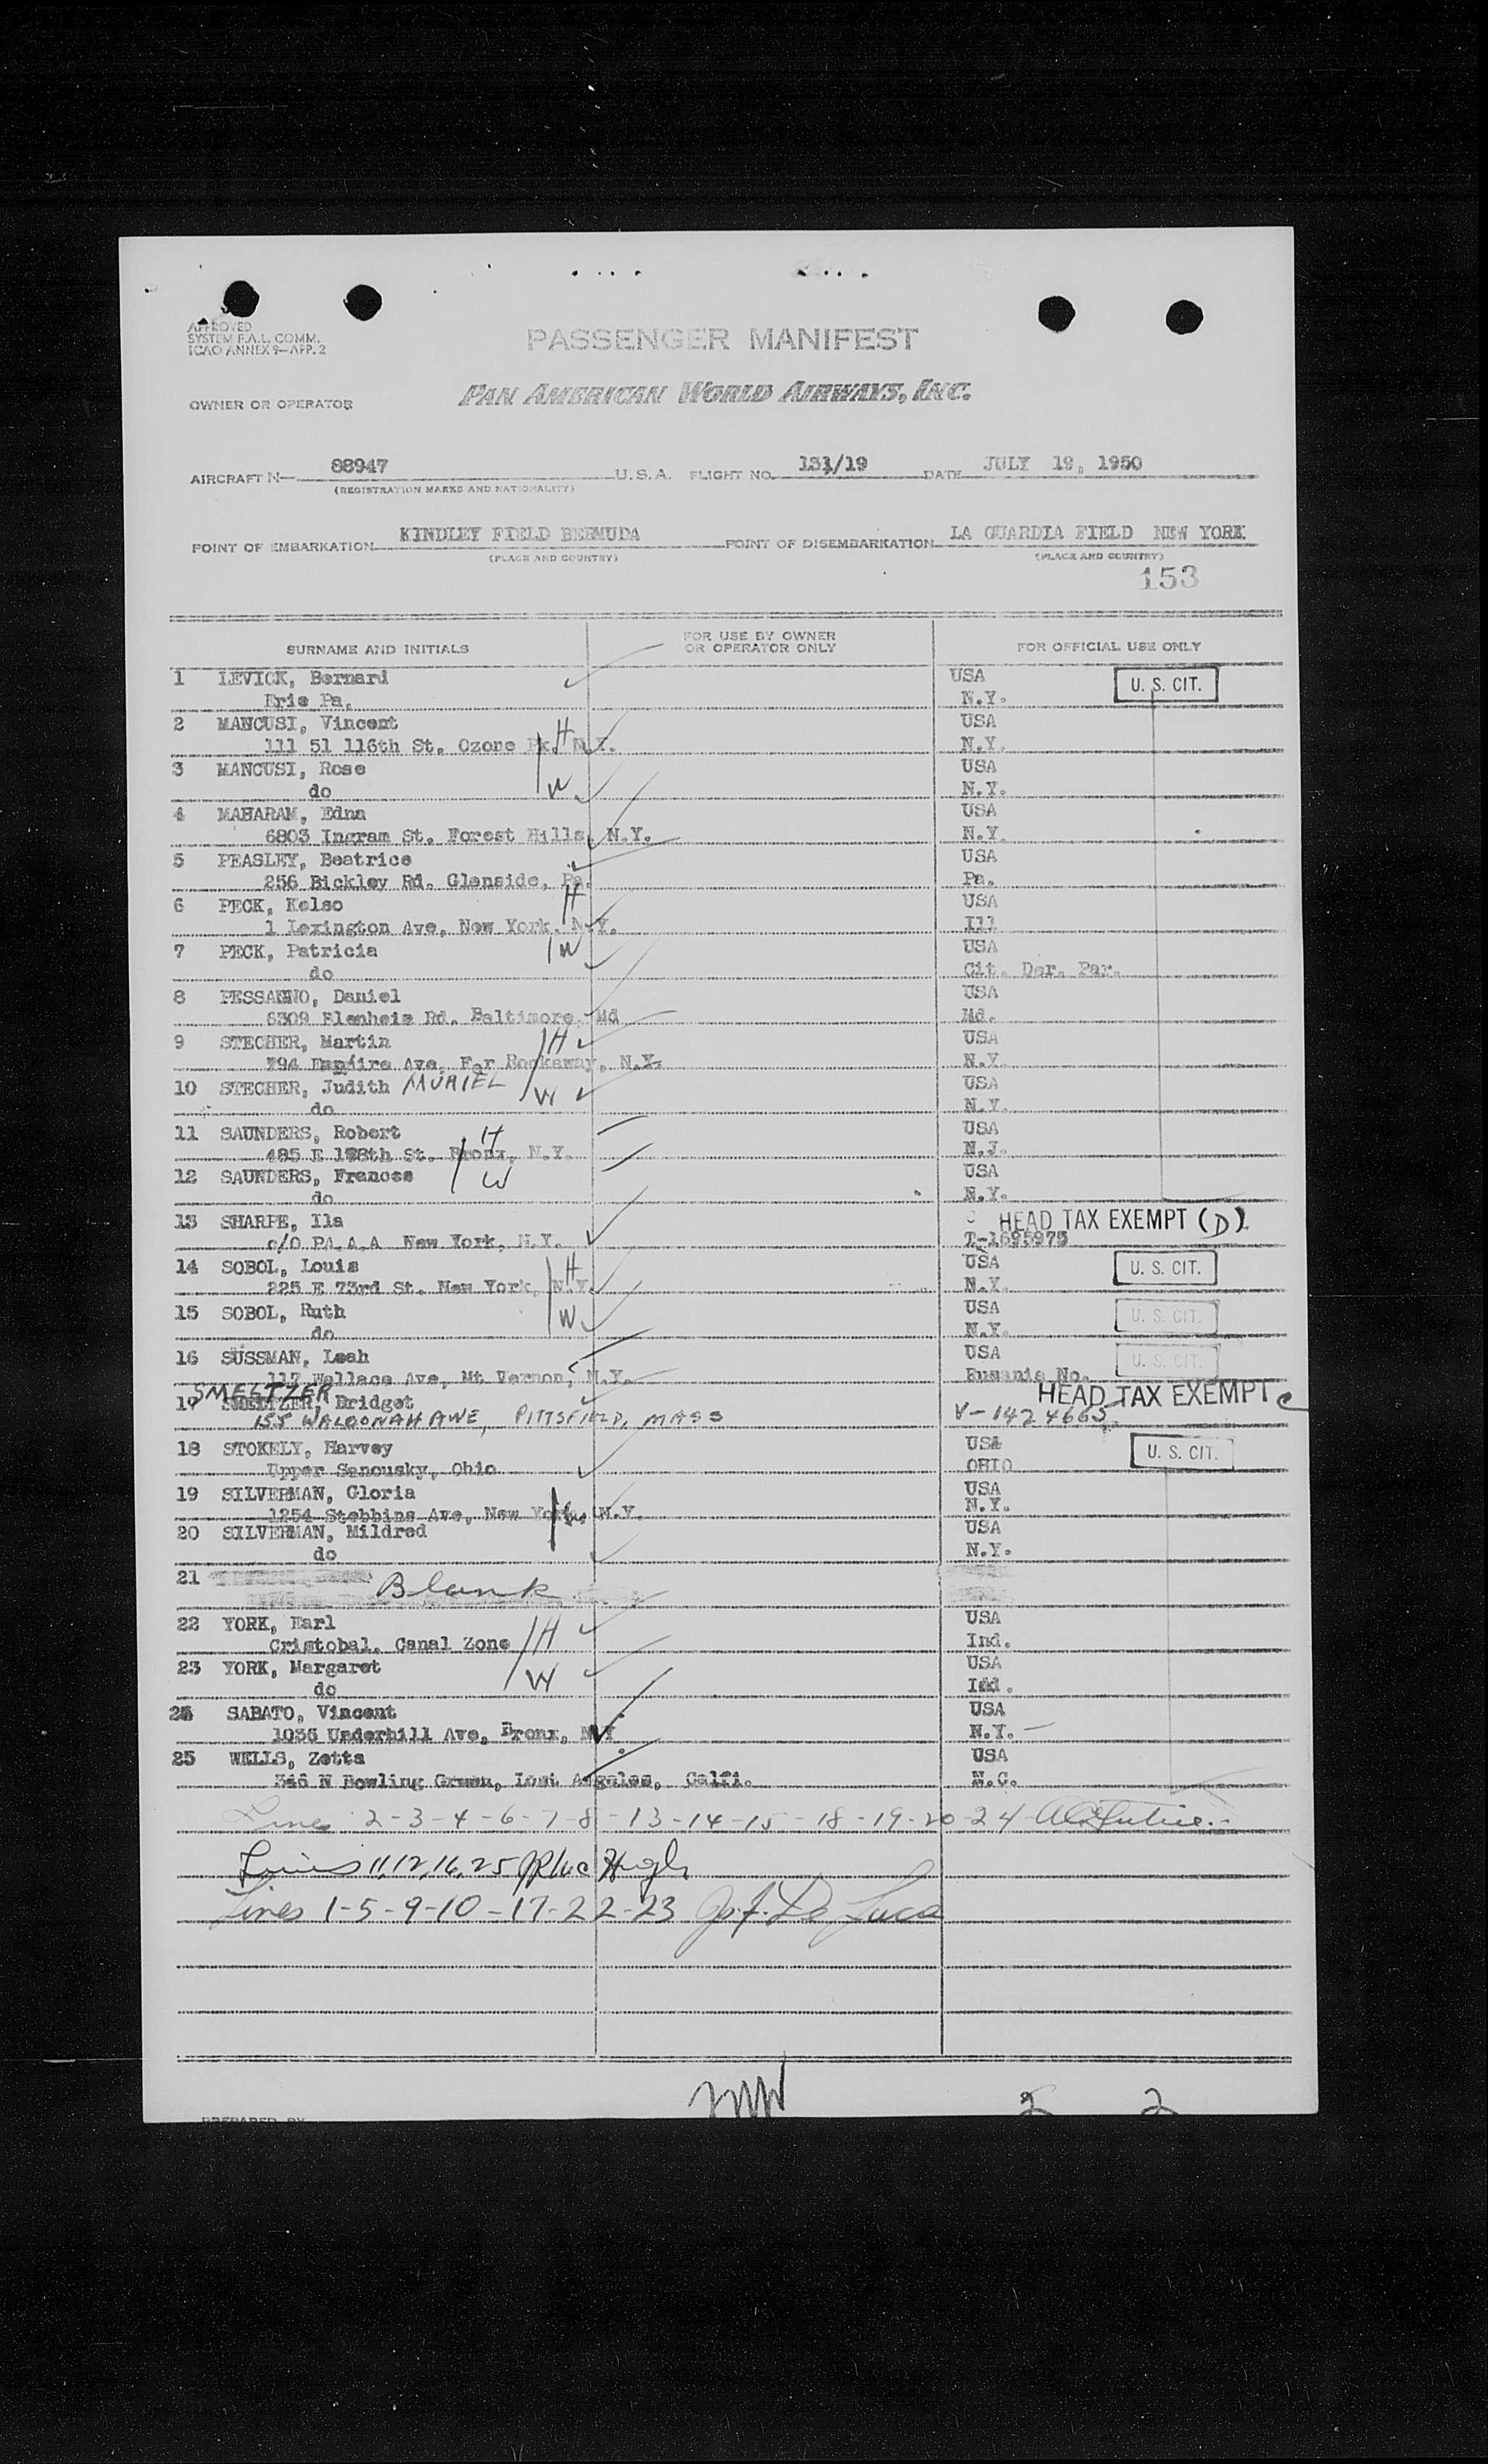 APPROVED
SYSTEM F.A.L. COMM.
ICAO ANNEX 9—APP. 2
PASSENGER MANIFEST
OWNER OR OPERATOR PAN AMERICAN WORLD AIRWAYS, INC.
AIRCRAFT N— 88947 U.S.A. FLIGHT NO. 131/19 DATE JULY 19, 1950
(REGISTRATION MARKS AND NATIONALITY)
POINT OF EMBARKATION KINDLEY FIELD BERMUDA POINT OF DISEMBARKATION LA GUARDIA FIELD NEW YORK
(PLACE AND COUNTRY) (PLACE AND COUNTRY)
153
SURNAME AND INITIALS FOR USE BY OWNER OR OPERATOR ONLY FOR OFFICIAL USE ONLY
1 LEVICK, Bernard USA U. S. CIT.
Erie Pa. N.Y.
2 MANCUSI, Vincent H USA
111 51 116th St. Ozone Pk. N.Y. N.Y.
3 MANCUSI, Rose USA
do W N.Y.
4 MAHARAM, Edna USA
6803 Ingram St. Forest Hills, N.Y. N.Y.
5 PEASLEY, Beatrice USA
256 Bickley Rd. Glenside, Pa. Pa.
6 PECK, Kelso H USA
1 Lexington Ave, New York. N.Y. Ill
7 PECK, Patricia W USA
do Cit. Der. Par.
8 PESSAGNO, Daniel USA
6309 Blenheim Rd. Baltimore, Md Md.
9 STECHER, Martin H USA
794 Empire Ave. Far Rockaway, N.Y. N.Y.
10 STECHER, Judith MURIEL W USA
do N.Y.
11 SAUNDERS, Robert H USA
485 E 178th St. Bronx, N.Y. N.J.
12 SAUNDERS, Frances W USA
do N.Y.
13 SHARPE, Ila HEAD TAX EXEMPT (D)
c/o P.A.A.A New York, N.Y. T-1695975
14 SOBOL, Louis H USA U. S. CIT.
225 E 73rd St. New York, N.Y. N.Y.
15 SOBOL, Ruth W USA U. S. CIT.
do N.Y.
16 SUSSMAN, Leah USA U. S. CIT.
117 Wallace Ave, Mt Vernon, N.Y. Rumania No.
SMELTZER HEAD TAX EXEMPT C
17 Bridget
155 WALBONAH AWE, PITTSFIELD, MASS V-1424665
18 STOKELY, Harvey USA U. S. CIT.
Upper Sanousky, Ohio OHIO
19 SILVERMAN, Gloria USA
1254 Stebbins Ave, New York, N.Y. N.Y.
20 SILVERMAN, Mildred USA
do N.Y.
21 Blank
22 YORK, Earl H USA
Cristobal, Canal Zone Ind.
23 YORK, Margaret W USA
do Ind.
24 SABATO, Vincent USA
1035 Underhill Ave, Bronx, N.Y. N.Y.
25 WELLS, Zetta USA
346 N Bowling Green, Lost Angeles, Calfi. N.C.
Lines 2-3-4-6-7-8-13-14-15-18-19-20-24
Lines 11, 12, 16, 25
Lines 1-5-9-10-17-22-23 J. De Luca
PREPARED BY
2 2